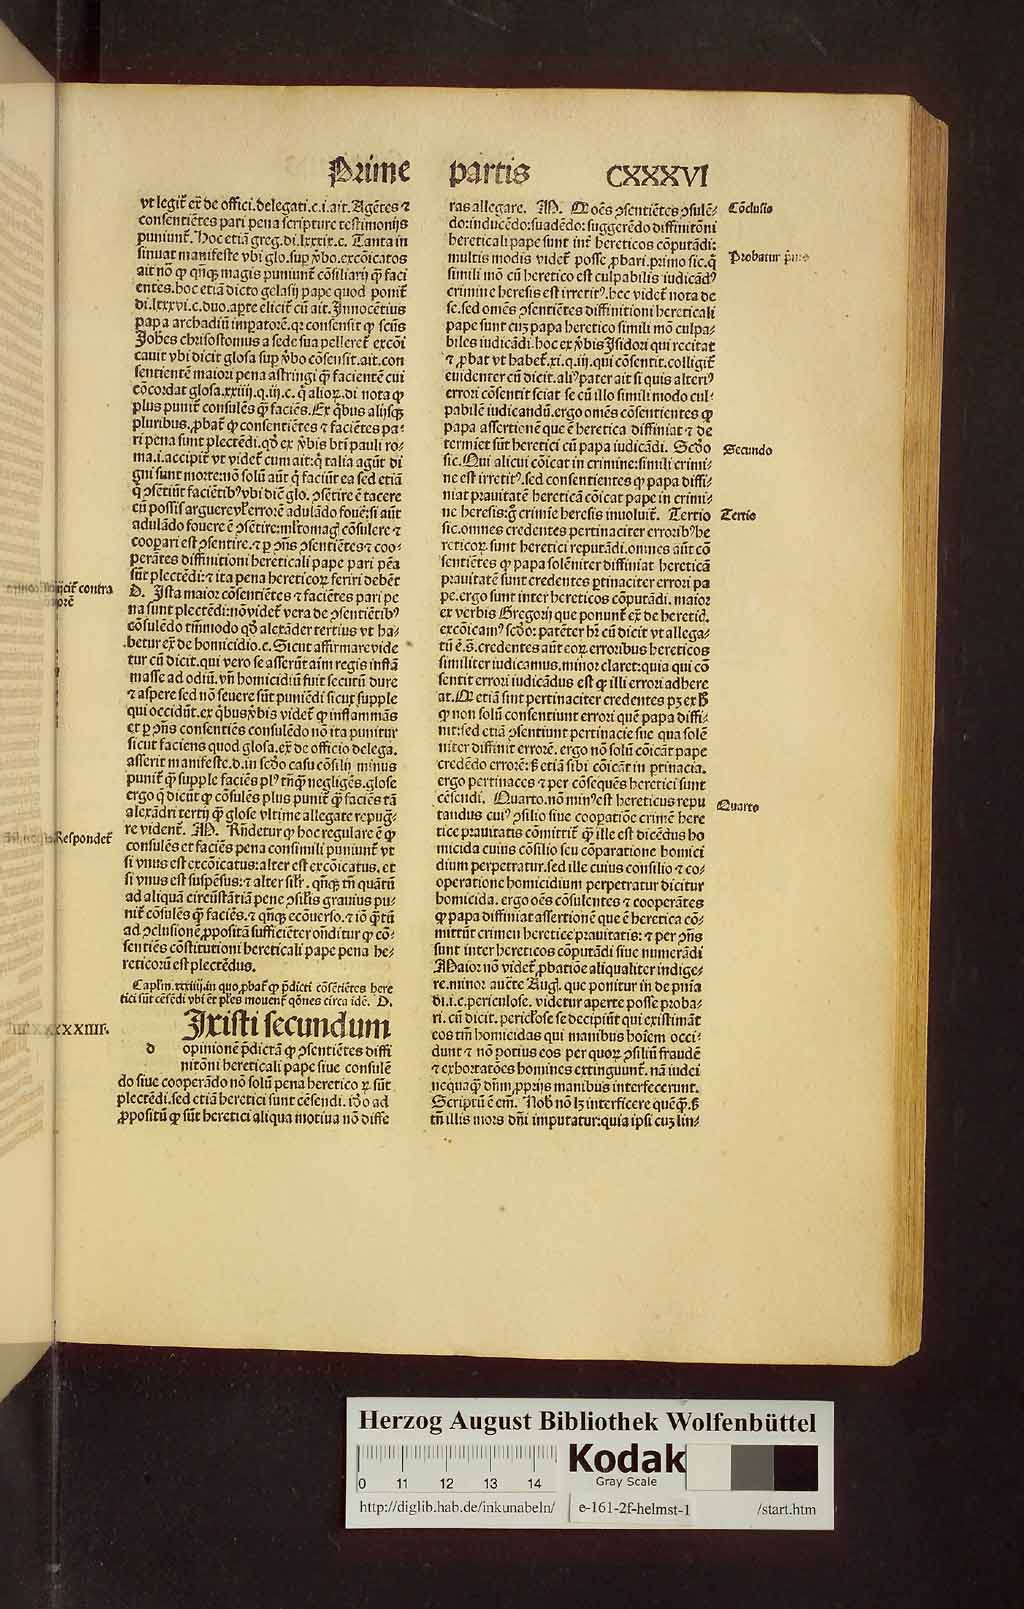 Prime partis CXXXVI
vt legit̄ ex̄ de offici.delegati.c.i.ait.Agētes ⁊
consentiētes pari pena scripture testimonijs
puniunt̄. Hoc etiā greg.di.lxxxiij.c. Tanta in
sinuat manifeste vbi glo.sup v̄bo.excōicatos
ait nō ꝙ qn̄qꝫ magis puniunt̄ cōsiliarij q̄ faci
entes.hoc etiā dicto gelasij pape quod ponit̄
di.lxxxvi.c.duo.aꝑte elicit̄ cū ait. Innocētius
papa archadiū imꝑatorē.qꝛ consensit ꝙ scūs
Joh̄es chrisostomus a sede sua pelleret̄ excōi
cauit vbi dicit glosa sup v̄bo cōsensit.ait.con
sentientē maiori pena astringi q̄ facientē cui
cōcordat glosa.xxiiij.q.iij.c. q̄ alioꝝ.di nota ꝙ
plus punit̄ consulēs q̄ faciēs. Ex q̄bus alijsqꝫ
pluribus.ꝓbat̄ ꝙ consentiētes ⁊ faciētes pa-
ri pena sunt plectēdi.qd̄ ex v̄bis bt̄i pauli ro-
ma.i.accipit̄ vt videt̄ cum ait:q̄ talia agūt di
gni sunt morte:nō solū aūt q̄ faciūt ea sed etiā
q̄ ꝯsētiūt faciētibꝰ vbi dic̄ glo. ꝯsētire ē tacere
cū possis arguere vel̄ errorē adulādo fouē:si aūt
adulādo fouere ē ꝯsētire:ml̄tomagꝭ cōsulere ⁊
cooꝑari est ꝯsentire.⁊ ꝑ ꝯn̄s ꝯsentiētes ⁊ coo-
perātes diffinitioni hereticali pape pari pēa
sūt plectēdi:⁊ ita pena hereticoꝝ feriri debēt
D. Ista maior cōsentiētes ⁊ faciētes pari pe
na sunt plectēdi:nō videt̄ vera de ꝯsentiētibꝰ
cōsulēdo tm̄modo qd̄ alexāder tertius vt ha-
betur ex̄ de homicidio.c. Sicut affirmare vide
tur cū dicit.qui vero se asserūt aīm regis inflā
masse ad odiū.vn̄ homicidiū fuit secutū dure
⁊ aspere sed nō seuere sūt puniēdi sicut supple
qui occidūt.ex q̄bus v̄bis videt̄ ꝙ inflammās
et ꝑ ꝯn̄s consentiēs consulēdo nō ita punitur
sicut faciens quod glosa.ex̄ de officio delega.
asserit manifeste.d.in scd̄o casu cōsilij minus
punit̄ q̄ supple faciēs plꝰ tn̄qꝫ negligēs.glose
ergo q̄ dicūt ꝙ cōsulēs plus punit̄ q̄ faciēs tā
alexādri tertij q̄ glose vltime allegate repuḡ-
re vident̄. M. Rn̄detur ꝙ hoc regulare ē ꝙ
consulēs et faciēs pena consimili puniunt̄ vt
si vnus est excōicatus:alter est excōicatus.et
si vnus est suspēsus:⁊ alter sil̄r. qn̄qꝫ tn̄ quātū
ad aliquā circūstātiā pene ꝯsil̄is grauius pu-
nit̄ cōsulēs q̄ faciēs.⁊ qn̄qꝫ ecōuerso.⁊ iō q̄tū
ad ꝯclusionē ꝓpositā sufficiēter on̄ditur ꝙ cō-
sentiēs cōstitutioni hereticali pape pena he-
reticorū est plectēdus.
Caplm̄.xxxiiij.in quo ꝓbat̄ ꝙ p̄dicti cōsētiētes here
tici sūt cēsēdi vbi et pl̄es mouent̄ q̄ōnes circa idē. D.
Ixisti secundum
d opinionē p̄dictā ꝙ ꝯsentiētes diffi
nitōni hereticali pape siue consulē
do siue cooperādo nō solū pena heretico ꝝ sūt
plectēdi.sed etiā heretici sunt cēsendi. iō ad
ꝓpositū ꝙ sūt heretici aliqua motiua nō diffe
ras allegare. M. Q oēs ꝯsentiētes ꝯsulē-
do:inducēdo:suadēdo:suggerēdo diffinitōni
hereticali pape sunt int̄ hereticos cōputādi:
multis modis videt̄ posse ꝓbari.primo sic.q̄
simili mō cū heretico est culpabilis iudicādꝰ
crimine heresis est irretitꝰ.hec videt̄ nota de
se.sed omēs ꝯsentiētes diffinitioni hereticali
pape sunt cuꝫ papa heretico simili mō culpa-
biles iudicādi.hoc ex v̄bis Isidori qui recitat
⁊ ꝓbat vt habet̄.xi.q.iij.qui cōsentit.colligit̄
euidenter cū dicit.aliꝰ pater ait si quis alteriꝰ
errori cōsentit sciat se cū illo simili modo cul-
pabilē iudicandū.ergo omēs cōsentientes ꝙ
papa assertionē que ē heretica diffiniat ⁊ de
termiet sūt heretici cū papa iudicādi. Scd̄o
sic.Qui alicui cōicat in crimine:simili crimi-
ne est irretitꝰ.sed consentientes ꝙ papa diffi-
niat prauitatē hereticā cōicat pape in crimi-
ne heresis:g̊ crimīe heresis inuoluit̄. Tertio
sic.omnes credentes pertinaciter erroribꝰ he
reticoꝝ sunt heretici reputādi.omnes aūt cō
sentiētes ꝙ papa solēniter diffiniat hereticā
prauitatē sunt credentes ꝑtinaciter errori pa
pe.ergo sunt inter hereticos cōputādi. maior
ex verbis Gregorij que ponunt̄ ex̄ de heretic̄.
excōicamꝰ scd̄o:patēter hr̄ cū dicit vt allega-
tū ē.s̄.credentes aūt eoꝝ erroribus hereticos
similiter iudicamus.minor claret:quia qui cō
sentit errori iudicādus est ꝙ illi errori adhere
at.Q̄ etiā sint pertinaciter credentes pꝫ ex h̄
ꝙ non solū consentiunt errori quē papa diffi-
nit:sed etiā ꝯsentiunt pertinacie sue qua solē
niter diffinit errorē. ergo nō solū cōicāt pape
credēdo errorē:s̄ etiā sibi cōicāt in ꝑtinacia.
ergo pertinaces ⁊ per cōsequēs heretici sunt
cēsendi. Quarto.nō minꝰ est hereticus repu
tandus cuiꝰ ꝯsilio siue cooꝑatiōe crimē here
tice prauitatis cōmittit̄ q̄ ille est dicēdus ho
micida cuius cōsilio seu cōparatione homici
dium perpetratur.sed ille cuius consilio ⁊ co-
operatione homicidium perpetratur dicitur
homicida. ergo oēs cōsulentes ⁊ cooperātes
ꝙ papa diffiniat assertionē que ē heretica cō-
mittūt crimen heretice prauitatis: ⁊ per ꝯn̄s
sunt inter hereticos cōputādi siue numerādi
Maior nō videt̄ ꝓbatiōe aliqualiter indige-
re.minor auc̄te Augꝭ. que ponitur in de pn̄ia
di.i.c.periculose. videtur aperte posse proba-
ri. cū dicit. pericl̄ose se decipiūt qui existimāt
eos tm̄ homicidas qui manibus hoīem occi-
dunt ⁊ nō potius eos per quoꝝ ꝯsiliū fraudē
⁊ exhortatōes homines extinguunt̄. nā iudei
nequaqꝫ dn̄m ꝓprijs manibus interfecerunt.
Scriptū ē em̄. Nob̄ nō lꝫ interficere quēqꝫ.s̄
tn̄ illis mors dn̄i imputatur:quia ipsi cuꝫ lin-
Cōclusio
Probatur
Secundo
Tertio
Quarto
contra
Respondet̄
Herzog August Bibliothek Wolfenbüttel
0 11 12 13 14
Kodak
Gray Scale
http://diglib.hab.de/inkunabeln/ e-161-2f-helmst-1 /start.htm